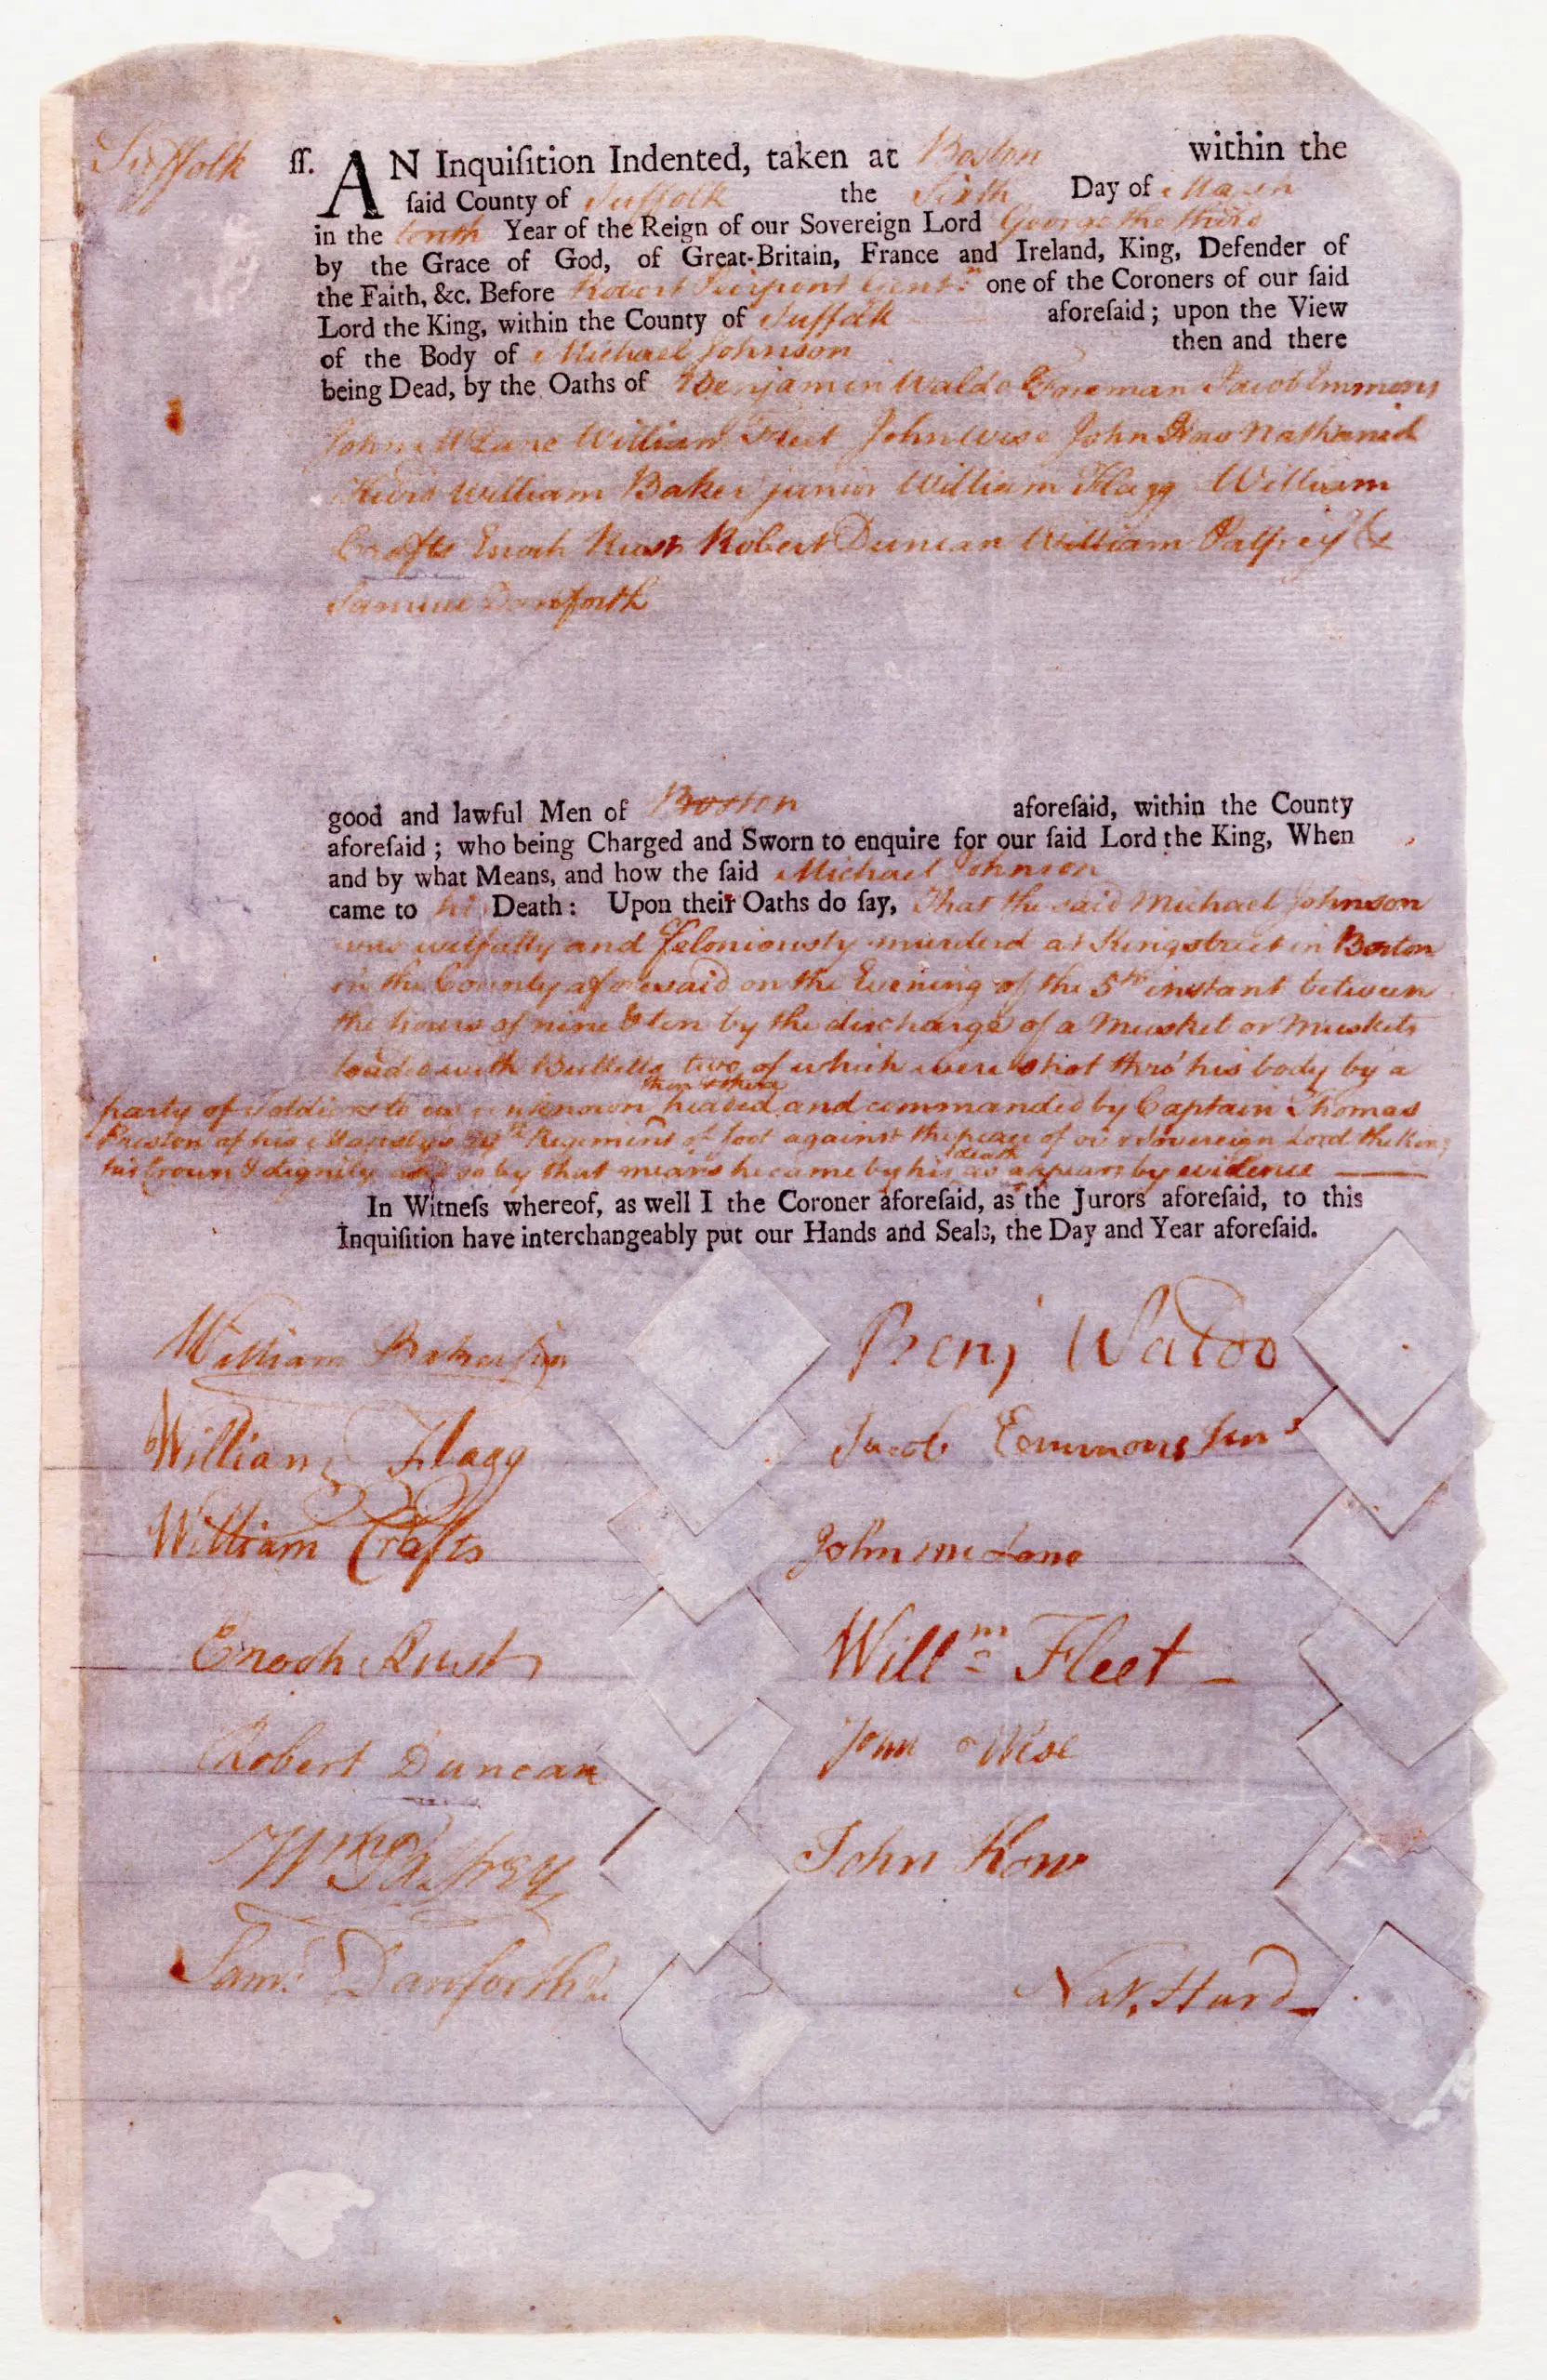 Suffolk ſſ. AN Inquiſition Indented, taken at Boston within the
ſaid County of Suffolk the Sixth Day of March
in the tenth Year of the Reign of our Sovereign Lord George the third
by the Grace of God, of Great-Britain, France and Ireland, King, Defender of
the Faith, &c. Before Robert Pierpont Gent.ⁿ one of the Coroners of our ſaid
Lord the King, within the County of Suffolk aforeſaid ; upon the View
of the Body of Michael Johnson then and there
being Dead, by the Oaths of Benjamin Waldo Foreman Jacob Emmons
John McLane William Fleet John Wise John How Nathaniel
Hurd William Baker junior William Flagg William
Crafts Enoch Rust Robert Duncan William Palfrey &
Samuel Danforth
good and lawful Men of Boston aforeſaid, within the County
aforeſaid ; who being Charged and Sworn to enquire for our ſaid Lord the King, When
and by what Means, and how the ſaid Michael Johnson
came to his Death : Upon their Oaths do ſay, That the said Michael Johnson
was wilfully and feloniously murderd at Kingstreet in Boston
in the County aforesaid on the Evening of the 5th instant between
the hours of nine & ten by the discharge of a Musket or Muskets
loaded with Bullets, two of which were shot thro' his body by a
party of Soldiers to us unknown, then & there headed and commanded by Captain Thomas
Preston of his Majesty's 29th Regiment of foot against the peace of our Sovereign Lord the King
his Crown & dignity and so by that means he came by his death as appears by evidence
In Witneſs whereof, as well I the Coroner aforeſaid, as the Jurors aforeſaid, to this
Inquiſition have interchangeably put our Hands and Seals, the Day and Year aforeſaid.
William Baker Jun
Benj Waldo
William Flagg
Jacob Emmons Junʳ
William Crafts
John McLane
Enoch Rust
Willᵐ Fleet
Robert Duncan
John Wise
Wᵐ Palfrey
John How
Samˡ Danforth
Nat. Hurd